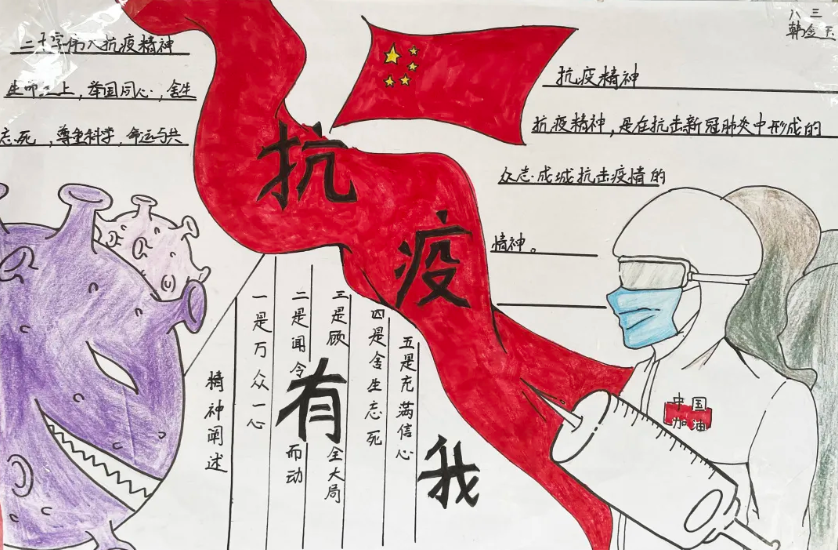 二十字伟大抗疫精神
生命至上，举国同心，舍生
忘死，尊重科学，命运与共
抗疫有我
八 三
抗疫精神
抗疫精神，是在抗击新冠肺炎中形成的
众志成城抗击疫情的
精神。
精神阐述
一是万众一心
二是闻令而动
三是顾全大局
四是舍生忘死
五是充满信心
中国
加油